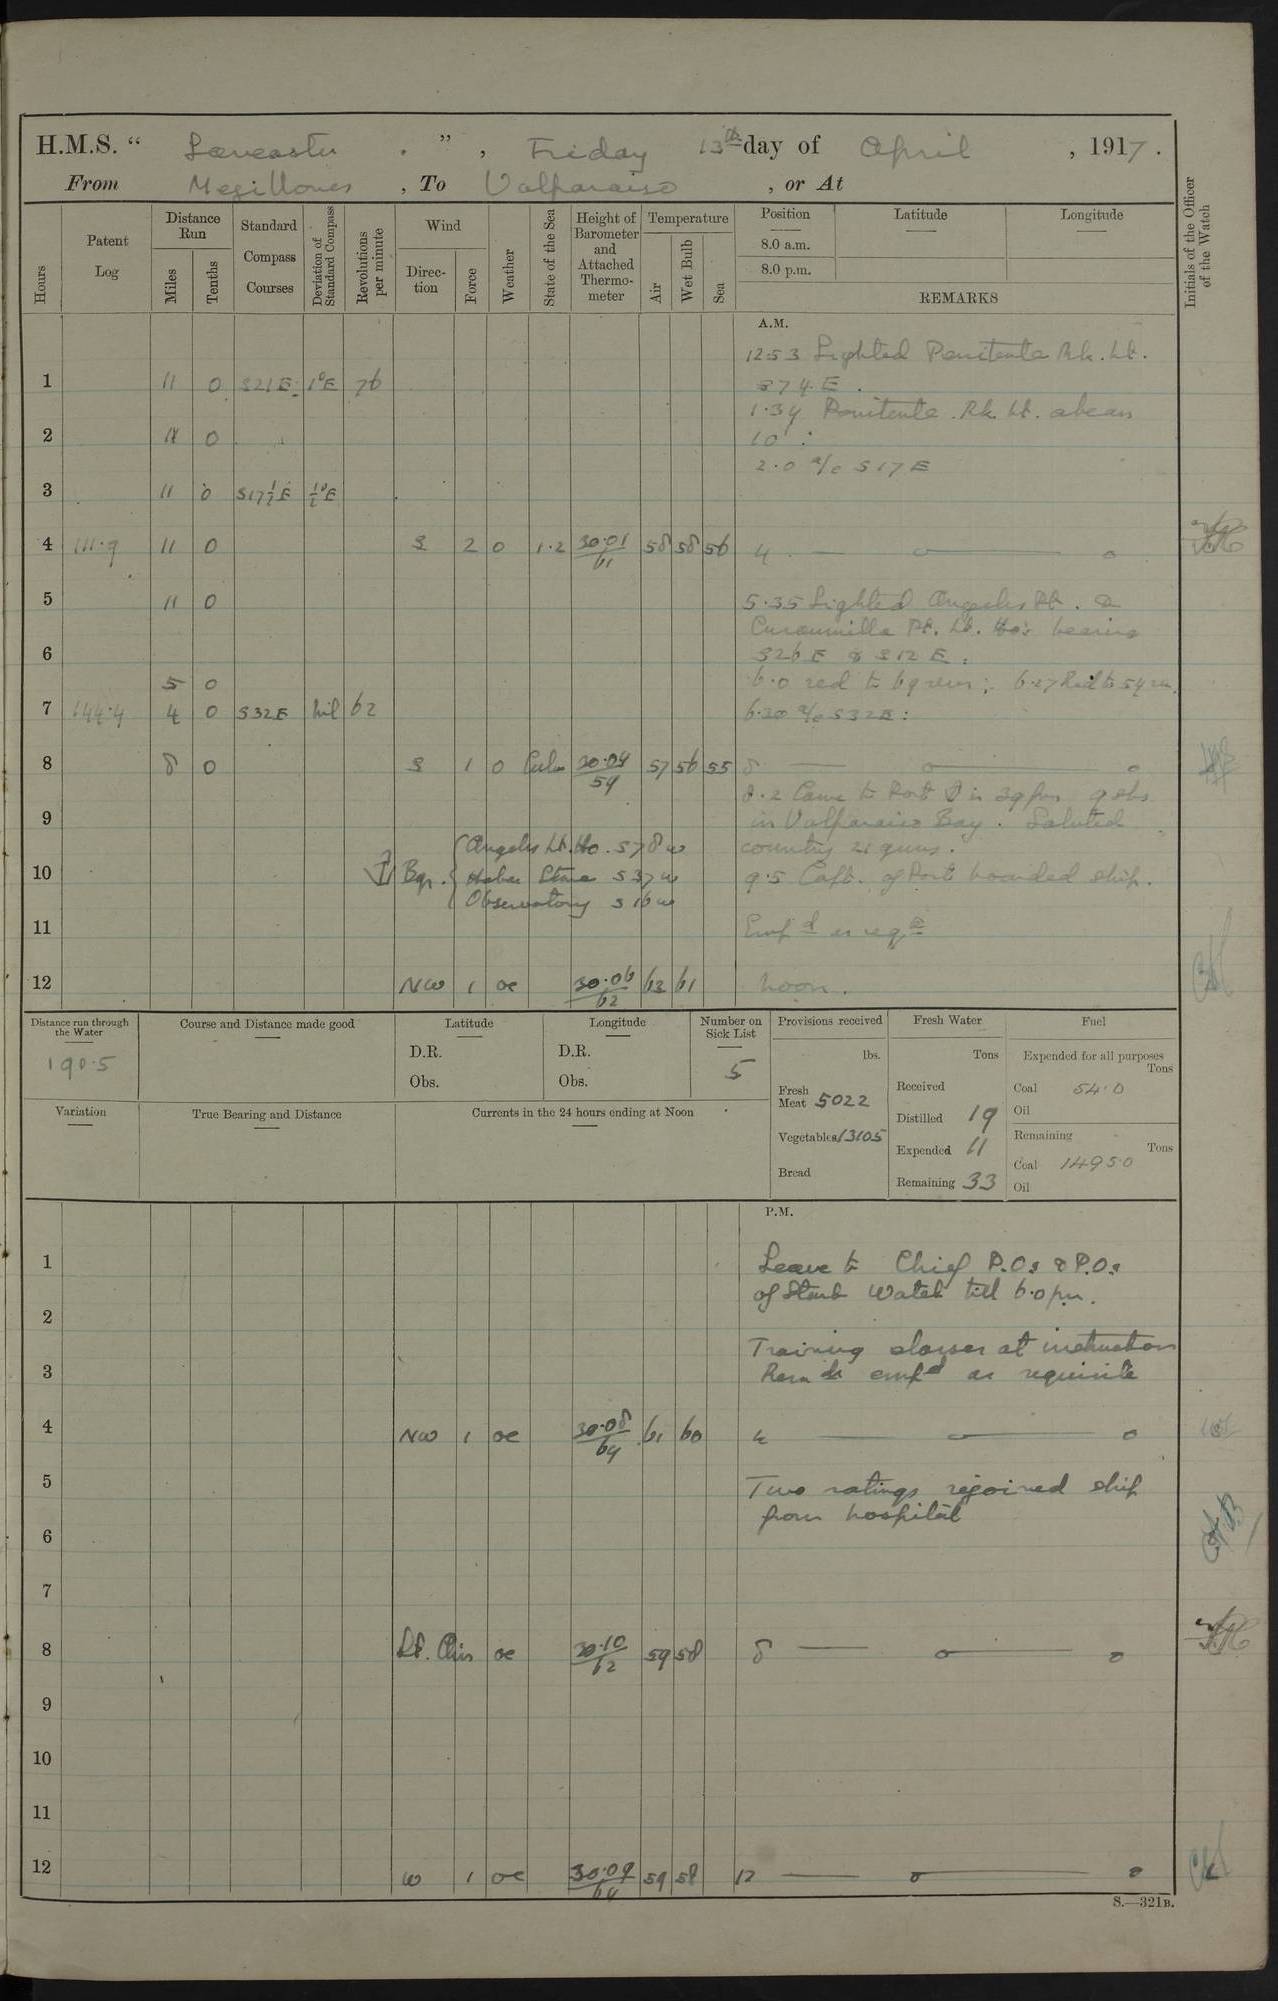 H.M.S. " Lancaster . " , Friday 13th day of April , 1917 .
From Megillones , To Valparaiso , or At
Hours
Patent Log
Distance Run
Miles
Tenths
Standard Compass Courses
Deviation of Standard Compass
Revolutions per minute
Wind
Direction
Force
Weather
State of the Sea
Height of Barometer and Attached Thermometer
Temperature
Air
Wet Bulb
Sea
Position
Latitude
Longitude
8.0 a.m.
8.0 p.m.
REMARKS
Initials of the Officer of the Watch
A.M.
12.53 Sighted Penitente Rk. Lt.
1 11 0 S21E 1°E 76 S74.E.
1.34 Penitente Rk. Lt. abeam
2 11 0 10' :
2.0 a/c S17E
3 11 0 S17½E ½°E
4 111.9 11 0 S 2 0 1.2 30.01/61 58 58 56 4
5 11 0 5.35 Sighted Angeles Pt. &
Curaumilla Pt. Lt. Ho's bearing
6 S26E & S12E.
5 0 6.0 red to 69 revs; 6.27 Red to 54 rev.
7 144.4 4 0 S32E Nil 62 6.30 a/c S32E:
8 8 0 S 1 0 Calm 30.04/59 57 56 55 8
8.2 Came to Port in 39 fms 9 shs
9 in Valparaiso Bay. Saluted
{ Angeles Lt. Ho. S78W country 21 guns.
10 Bgs. { Stone S37W 9.5 Capt. of Port boarded ship.
{ Observatory S16W
11 Emp'd as req'te
12 NW 1 oc 30.06/62 63 61 Noon.
Distance run through the Water
190.5
Course and Distance made good
Latitude
D.R.
Obs.
Longitude
D.R.
Obs.
Number on Sick List
5
Provisions received
lbs.
Fresh Meat 5022
Vegetables 13105
Bread
Fresh Water
Tons
Received
Distilled 19
Expended 11
Remaining 33
Fuel
Expended for all purposes
Tons
Coal 54.0
Oil
Remaining
Tons
Coal 1495.0
Oil
Variation
True Bearing and Distance
Currents in the 24 hours ending at Noon
P.M.
1 Leave to Chief P.Os & P.Os
of Starb Watch till 6.0 pm.
2
Training classes at instruction
3 Remdr emp'd as requisite
4 NW 1 oc 30.08/64 61 60 4
5 Two ratings rejoined ship
from hospital
6
7
8 Lt. Airs oc 30.10/62 59 58 8
9
10
11
12 W 1 oc 30.09/64 59 58 12
S.—321B.